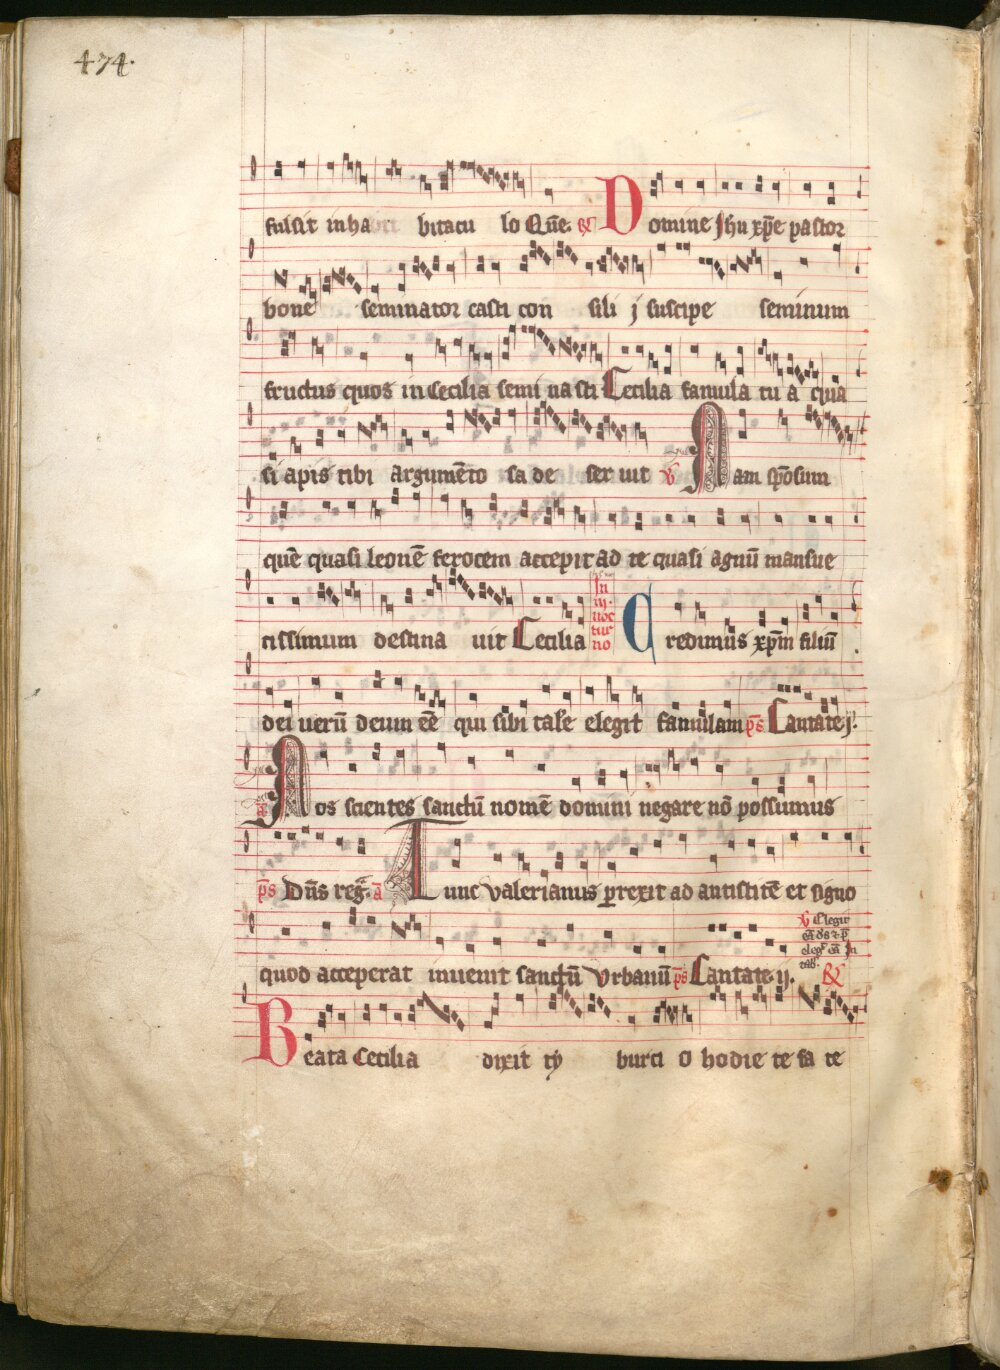 474.
fulsit in ha bitacu lo Qn̄e. ℟ Domine Jhu xp̄e pastor
bone seminator casti con sili j suscipe seminum
fructus quos in Cecilia semi na sti Cecilia famula tu a qua
si apis tibi argumēto sa de ser uit ℣ Nam spōsum
quē quasi leonē ferocem accepit ad te quasi agnū mansue
tissimum destina uit Cecilia In iij. noc tur no Credimus xp̄m filiū
dei uerū deum eē qui sibi tale elegit famulam p̄s Cantate j.
a Nos scientes sanctū nomē domini negare nō possumus
p̄s Dn̄s reg. a Tunc Valerianus prexit ad antistitē et signo
quod acceperat inuenit sanctū Vrbanū p̄s Cantate. ij. ℣ Elegit eā ds̄ ℟
Beata Cecilia dixit ty burti o hodie te fa te